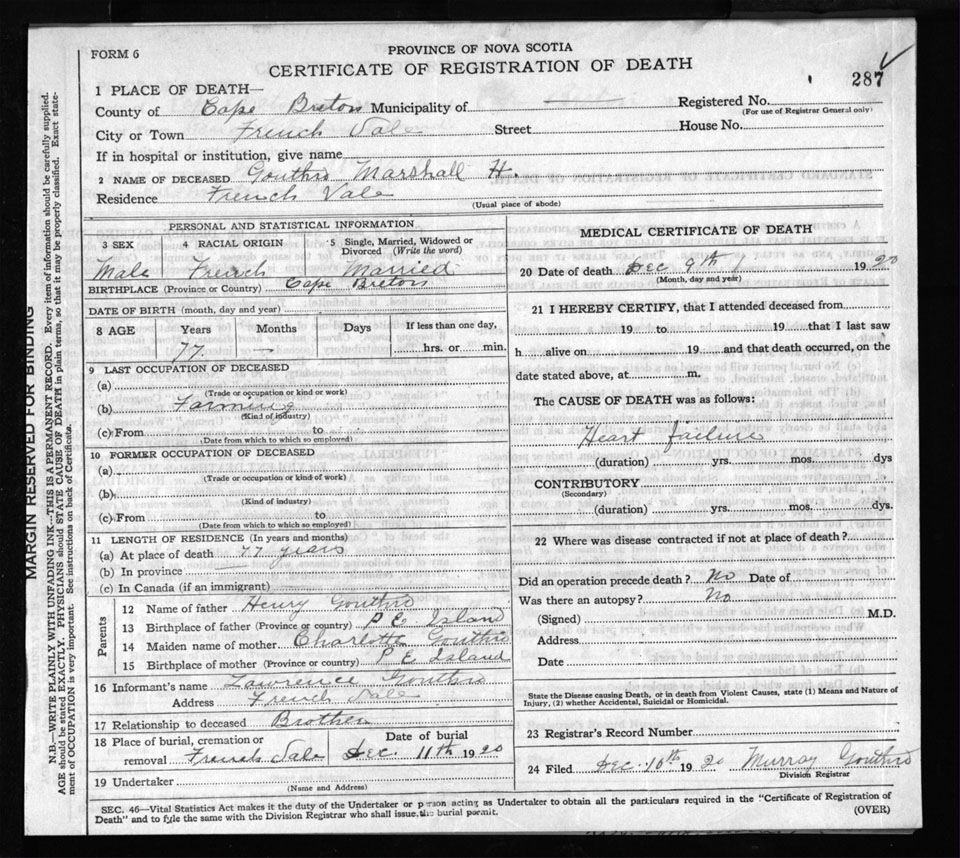 FORM 6
PROVINCE OF NOVA SCOTIA
CERTIFICATE OF REGISTRATION OF DEATH
287
1 PLACE OF DEATH—
County of Cape Breton Municipality of Registered No.
(For use of Registrar General only)
City or Town French Vale Street House No.
If in hospital or institution, give name
2 NAME OF DECEASED Gouthro Marshall H.
Residence French Vale
(Usual place of abode)
MARGIN RESERVED FOR BINDING
N.B.—WRITE PLAINLY WITH UNFADING INK—THIS IS A PERMANENT RECORD. Every item of information should be carefully supplied.
AGE should be stated EXACTLY. PHYSICIANS should STATE CAUSE OF DEATH in plain terms, so that it may be properly classified. Exact state-
ment of OCCUPATION is very important. See instructions on back of Certificate.
PERSONAL AND STATISTICAL INFORMATION
3 SEX 4 RACIAL ORIGIN 5 Single, Married, Widowed or
Divorced (Write the word)
Male French Married
BIRTHPLACE (Province or Country) Cape Breton
DATE OF BIRTH (month, day and year)
8 AGE Years Months Days If less than one day,
77 — hrs. or min.
9 LAST OCCUPATION OF DECEASED
(a)
(Trade or occupation or kind or work)
(b) Farming
(Kind of industry)
(c) From to
(Date from which to which so employed)
10 FORMER OCCUPATION OF DECEASED
(a)
(Trade or occupation or kind of work)
(b)
(Kind of industry)
(c) From to
(Date from which to which so employed)
11 LENGTH OF RESIDENCE (In years and months)
(a) At place of death 77 years
(b) In province —
(c) In Canada (if an immigrant)
Parents
12 Name of father Henry Gouthro
13 Birthplace of father (Province or country) P E Island
14 Maiden name of mother Charlotte Gouthro
15 Birthplace of mother (Province or country) P E Island
16 Informant's name Lawrence Gouthro
Address French Vale
17 Relationship to deceased Brother
18 Place of burial, cremation or Date of burial
removal French Vale Dec. 11th 1920
19 Undertaker
(Name and Address)
MEDICAL CERTIFICATE OF DEATH
20 Date of death Dec 9th 1920
(Month, day and year)
21 I HEREBY CERTIFY, that I attended deceased from
19 to 19 that I last saw
h alive on 19 and that death occurred, on the
date stated above, at m.
The CAUSE OF DEATH was as follows:
Heart failure
(duration) yrs. mos. dys
CONTRIBUTORY
(Secondary)
(duration) yrs. mos. dys.
22 Where was disease contracted if not at place of death?
Did an operation precede death? No Date of
Was there an autopsy? No
(Signed) M.D.
Address
Date
State the Disease causing Death, or in death from Violent Causes, state (1) Means and Nature of
Injury, (2) whether Accidental, Suicidal or Homicidal.
23 Registrar's Record Number
24 Filed Dec. 10th 1920 Murray Gouthro
Division Registrar
SEC. 46—Vital Statistics Act makes it the duty of the Undertaker or person acting as Undertaker to obtain all the particulars required in the "Certificate of Registration of
Death" and to file the same with the Division Registrar who shall issue the burial permit.
(OVER)